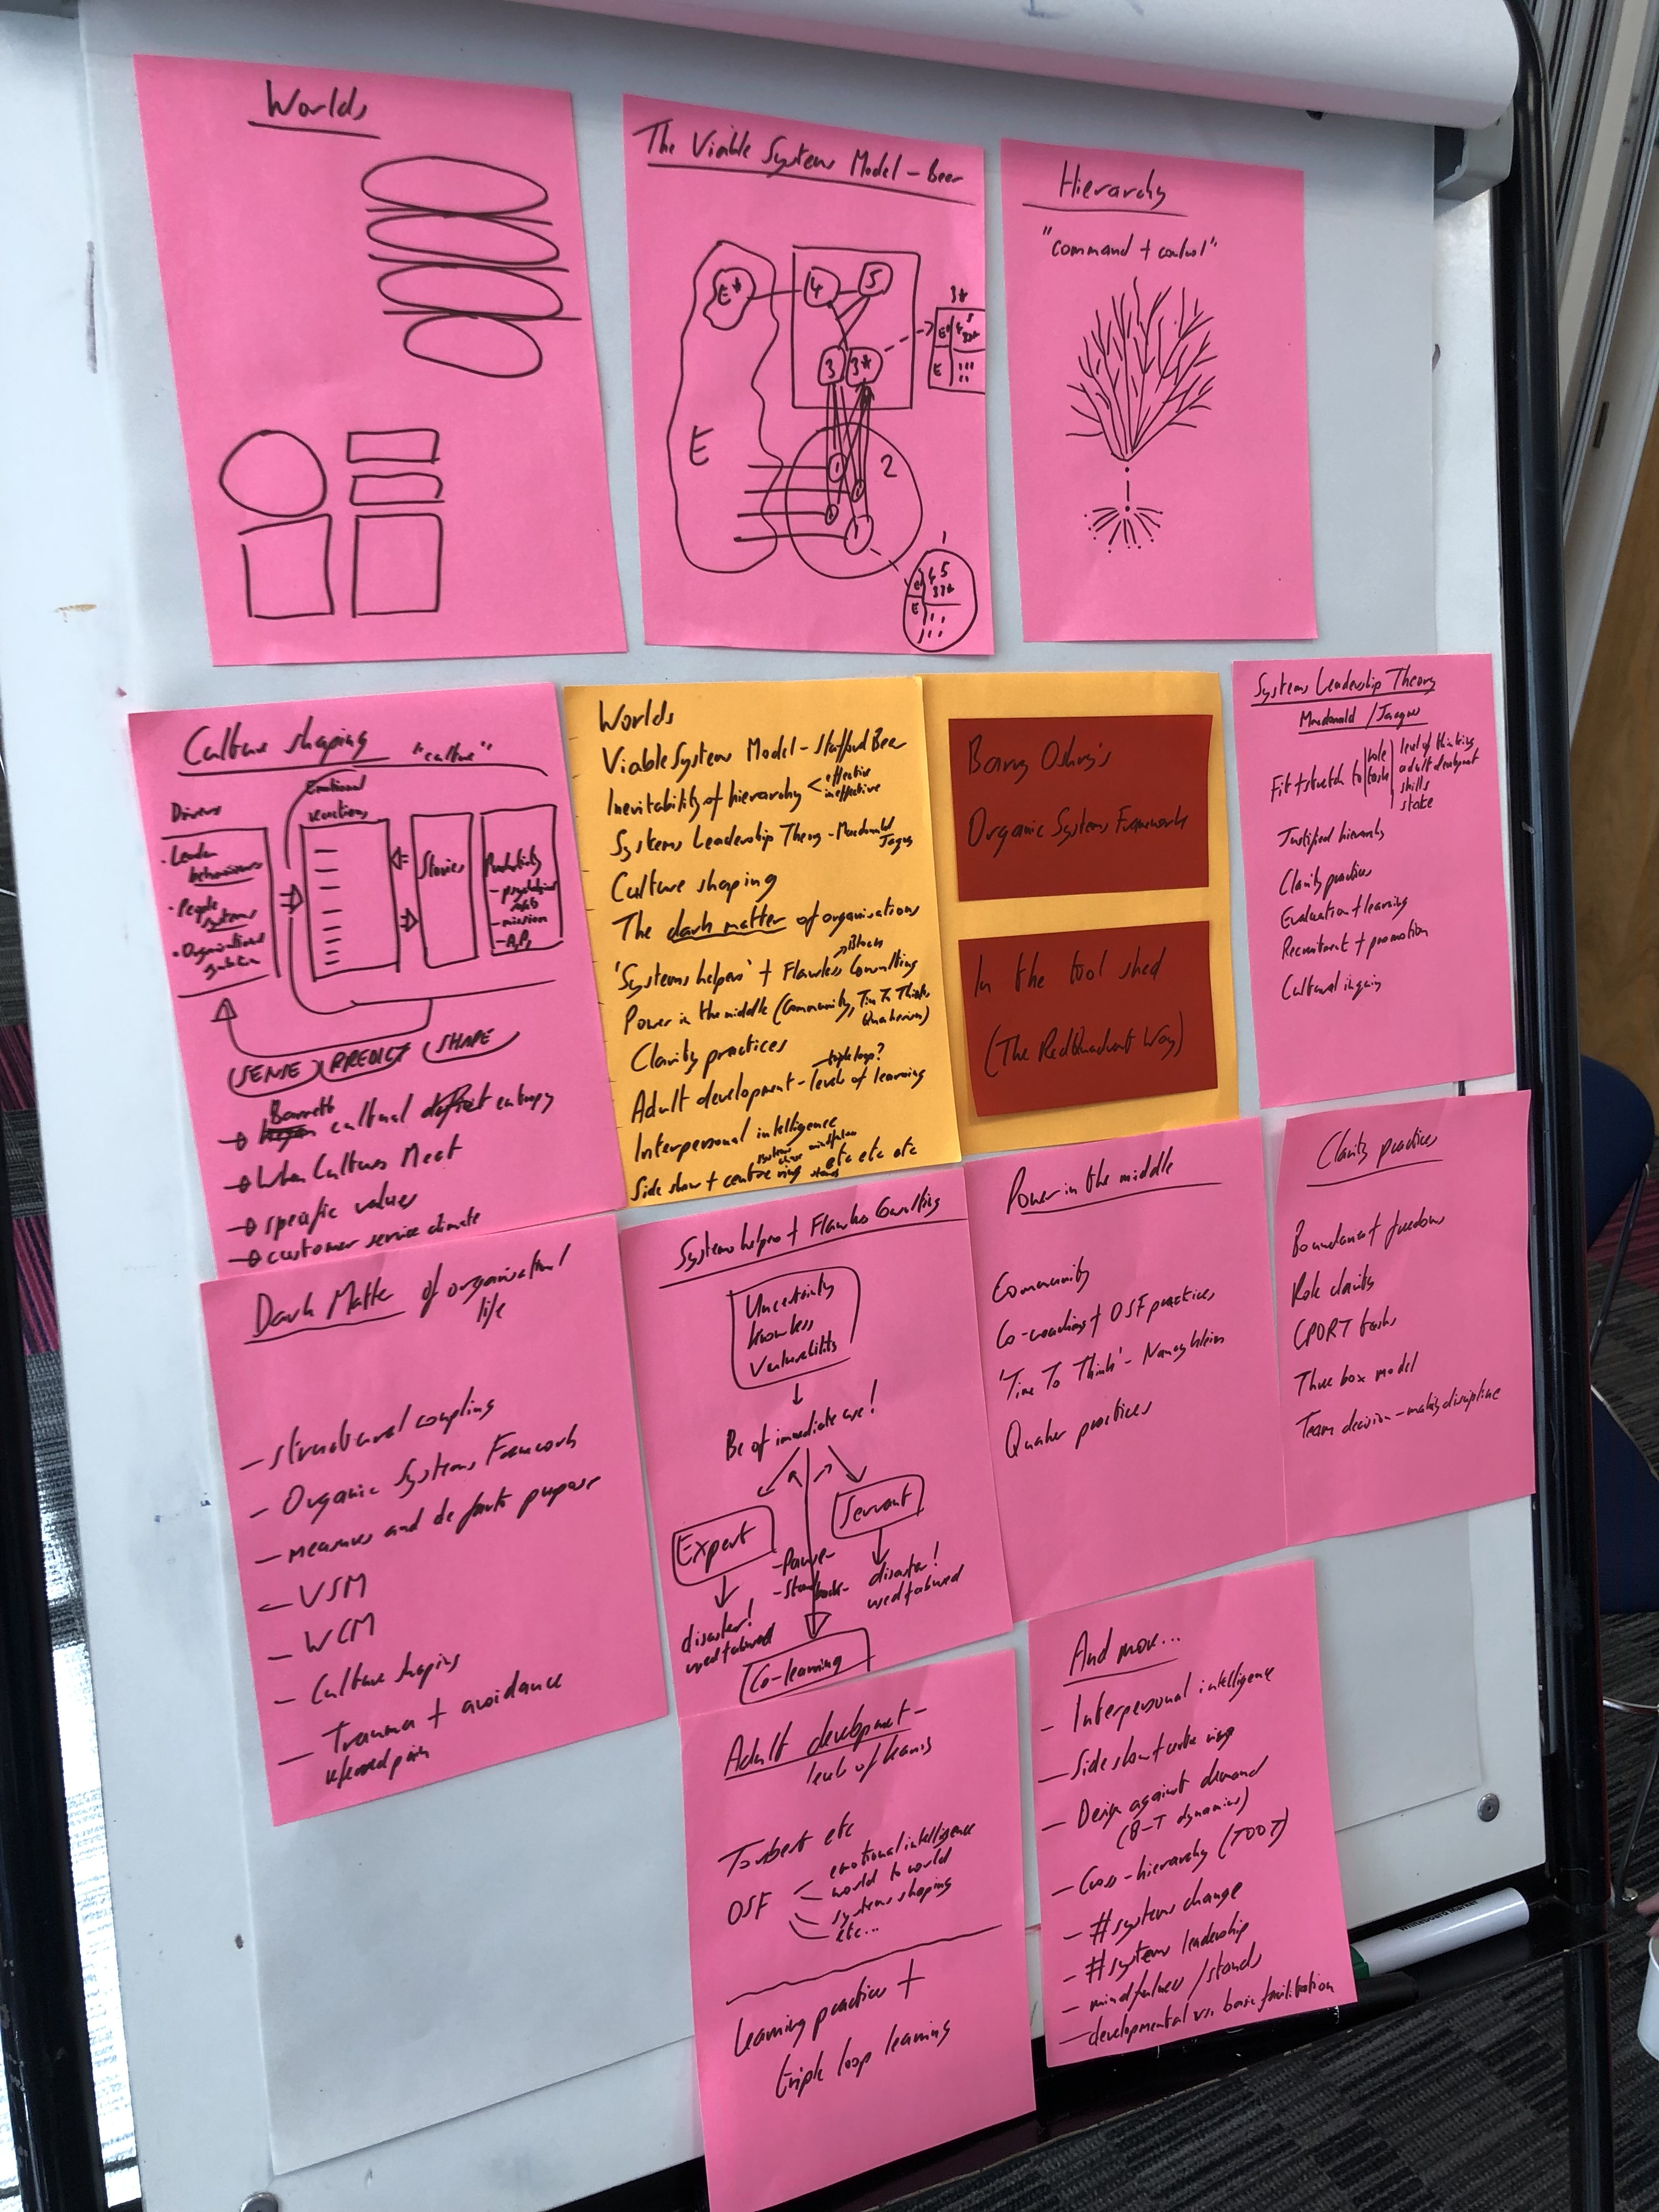 Worlds
The Viable Systems Model - Beer
E*
4
5
3
3*
E
2
1
1
3*
E
1
4 5
33*
E
Hierarchy
"command + control"
Culture shaping
"culture"
Drivers
· Leader
behaviours
· People
systems
· Organisational
Emotional
reactions
Stories
Productivity
- mission
SENSE
PREDICT
SHAPE
→ Barrett cultural entropy
→ When Cultures Meet
→ specific values
→ customer service climate
Worlds
Viable Systems Model - Stafford Beer
Inevitability of hierarchy < effective
ineffective
Systems Leadership Theory - Macdonald
Jaques
Culture shaping
The dark matter of organisations
→ Block
'Systems helpers' + Flawless Consulting
Power in the middle (Community, Time To Think,
Quakerism)
Clarity practices
triple loop?
Adult development - levels of learning
Interpersonal intelligence
Side show + centre ring etc etc etc
Barry Oshry's
Organic Systems Framework
In the tool shed
(The RedQuadrant Way)
Systems Leadership Theory
Macdonald / Jaques
Fit + stretch to
role
task
level of thinking
adult development
skills
state
Justified hierarchy
Clarity practices
Evaluation + learning
Recruitment + promotion
Cultural inquiry
Dark Matter of organisational
life
- structural coupling
- Organic Systems Framework
- measures and de facto purpose
- VSM
- WCM
- Culture shaping
- Trauma + avoidance
referred pain
Systems helpers + Flawless Consulting
Uncertainty
Vulnerability
Be of immediate use!
Expert
Servant
- Pause -
- Stand back -
disaster!
used + abused
disaster!
used + abused
Co-learning
Power in the middle
Community
Co-coaching + OSF practices
'Time To Think' - Nancy Klein
Quaker practices
Clarity practices
Boundaries + freedoms
Role clarity
CPORT tasks
Three box model
Team decision-making discipline
Adult development -
levels of learning
Torbert etc
OSF
emotional intelligence
world to world
systems shaping
etc...
Learning practice +
triple loop learning
And more...
- Interpersonal intelligence
- Side show + centre ring
- Design against demand
(B-T dynamics)
- Cross-hierarchy (TOOT)
- #systems change
- #systems leadership
- mindfulness / stands
- developmental vs. basic facilitation